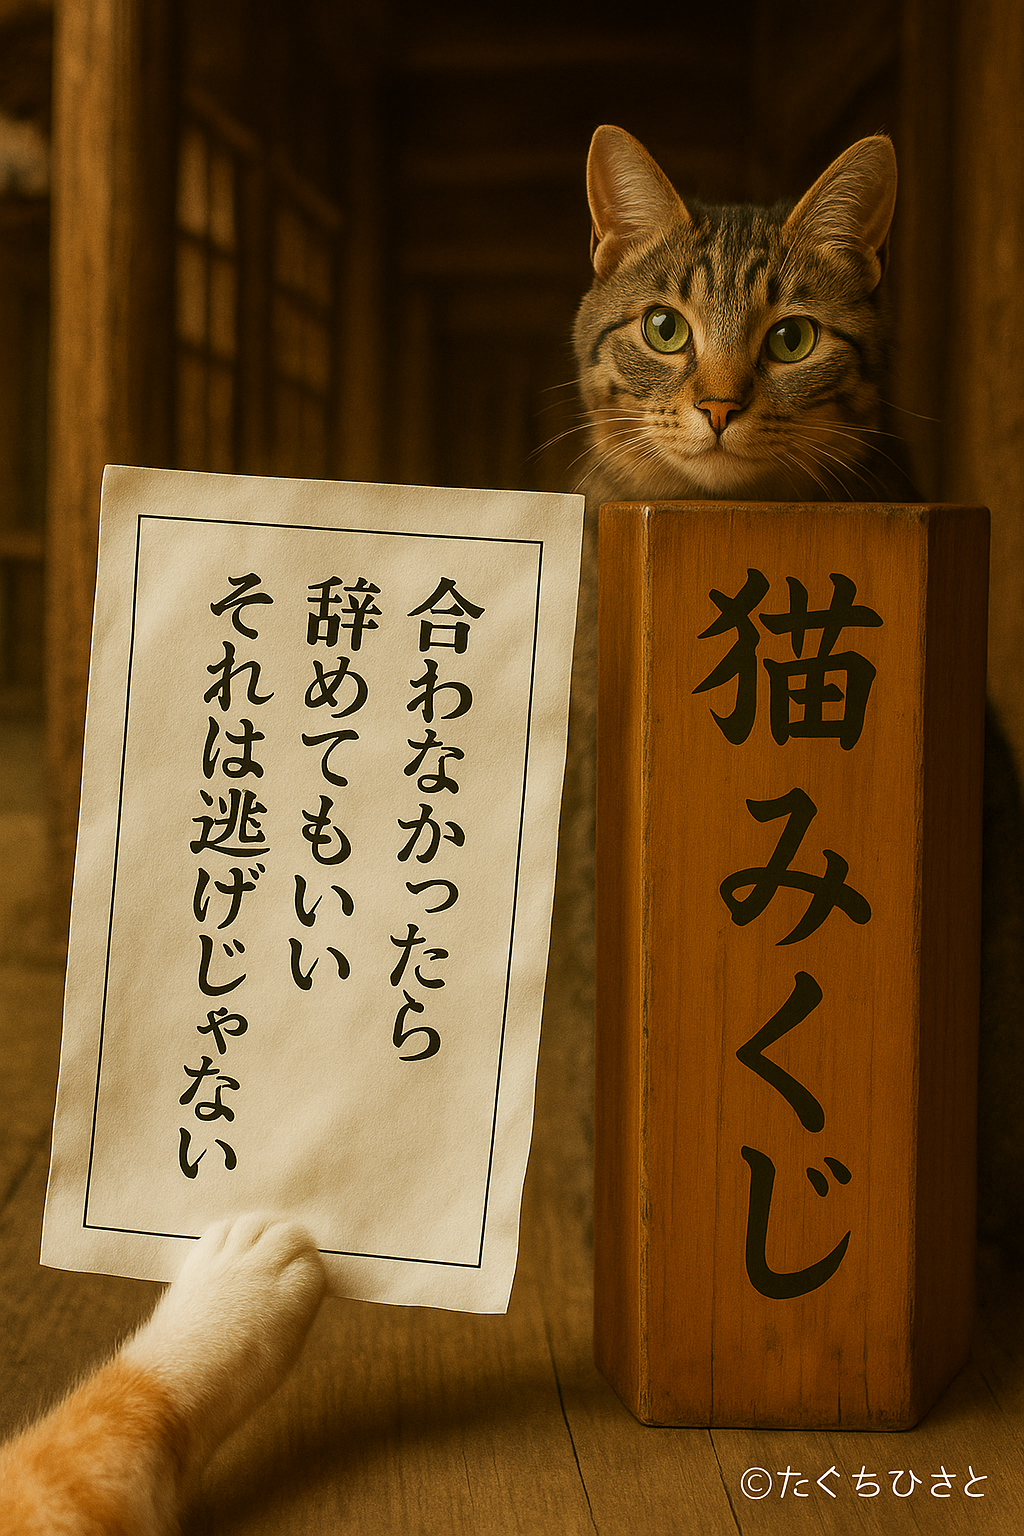 合わなかったら
辞めてもいい
それは逃げじゃない
猫みくじ
©たぐちひさと